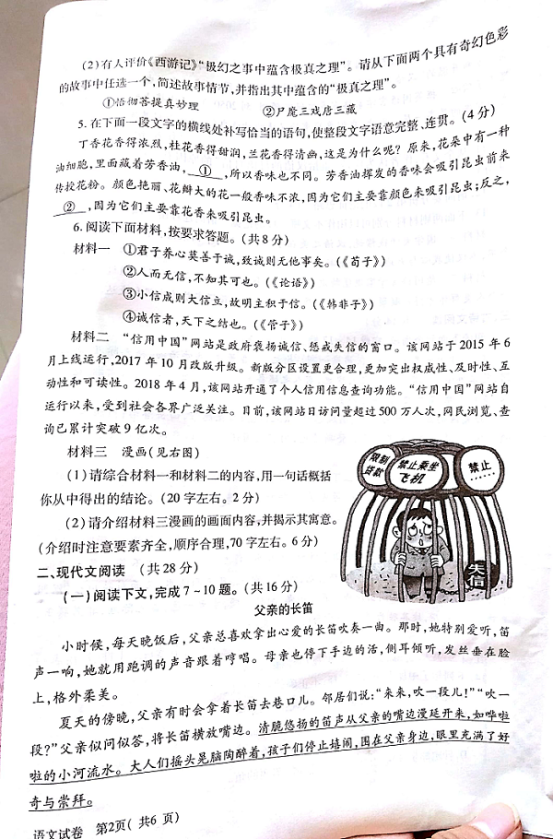 (2)有人评价《西游记》“极幻之事中蕴含极真之理”。请从下面两个具有奇幻色彩
的故事中任选一个,简述故事情节,并指出其中蕴含的“极真之理”。
①悟彻菩提真妙理 ②尸魔三戏唐三藏
5. 在下面一段文字的横线处补写恰当的语句,使整段文字语意完整、连贯。(4分)
丁香花香得浓烈,桂花香得甜润,兰花香得清幽,这是为什么呢?原来,花朵中有一种
油细胞,里面藏着芳香油,  ①  ,所以香味也不同。芳香油挥发的香味会吸引昆虫前来
传授花粉。颜色艳丽、花瓣大的花一般香味不浓,因为它们主要靠颜色来吸引昆虫;反之,
  ②  ,因为它们主要靠花香来吸引昆虫。
6. 阅读下面材料,按要求答题。(共8分)
材料一 ①君子养心莫善于诚,致诚则无他事矣。(《荀子》)
②人而无信,不知其可也。(《论语》)
③小信成则大信立,故明主积于信。(《韩非子》)
④诚信者,天下之结也。(《管子》)
材料二 “信用中国”网站是政府褒扬诚信、惩戒失信的窗口。该网站于2015年6
月上线运行,2017年10月改版升级。新版分区设置更合理,更加突出权威性、及时性、互
动性和可读性。2018年4月,该网站开通了个人信用信息查询功能。“信用中国”网站自
运行以来,受到社会各界广泛关注。目前,该网站日访问量超过500万人次,网民浏览、查
询已累计突破9亿次。
材料三 漫画(见右图)
(1)请综合材料一和材料二的内容,用一句话概括
你从中得出的结论。(20字左右。2分)
(2)请介绍材料三漫画的画面内容,并揭示其寓意。
(介绍时注意要素齐全,顺序合理,70字左右。6分)
限制
贷款
禁止乘坐
飞机
禁止
……
失
信
二、现代文阅读 (共28分)
(一)阅读下文,完成7~10题。(共16分)
父亲的长笛
小时候,每天晚饭后,父亲总喜欢拿出心爱的长笛吹奏一曲。那时,她特别爱听,笛
声一响,她就用跑调的声音跟着哼唱。母亲也停下手边的活,侧耳倾听,发丝垂在脸
上,格外柔美。
夏天的傍晚,父亲有时会拿着长笛去巷口儿。邻居们说:“来来,吹一段儿!”“吹一
段?”父亲似问似答,将长笛横放嘴边。清脆悠扬的笛声从父亲的嘴边漫延开来,如哗啦
啦的小河流水。大人们摇头晃脑陶醉着,孩子们停止嬉闹,围在父亲身边,眼里充满了好
奇与崇拜。
语文试卷 第2页(共6页)